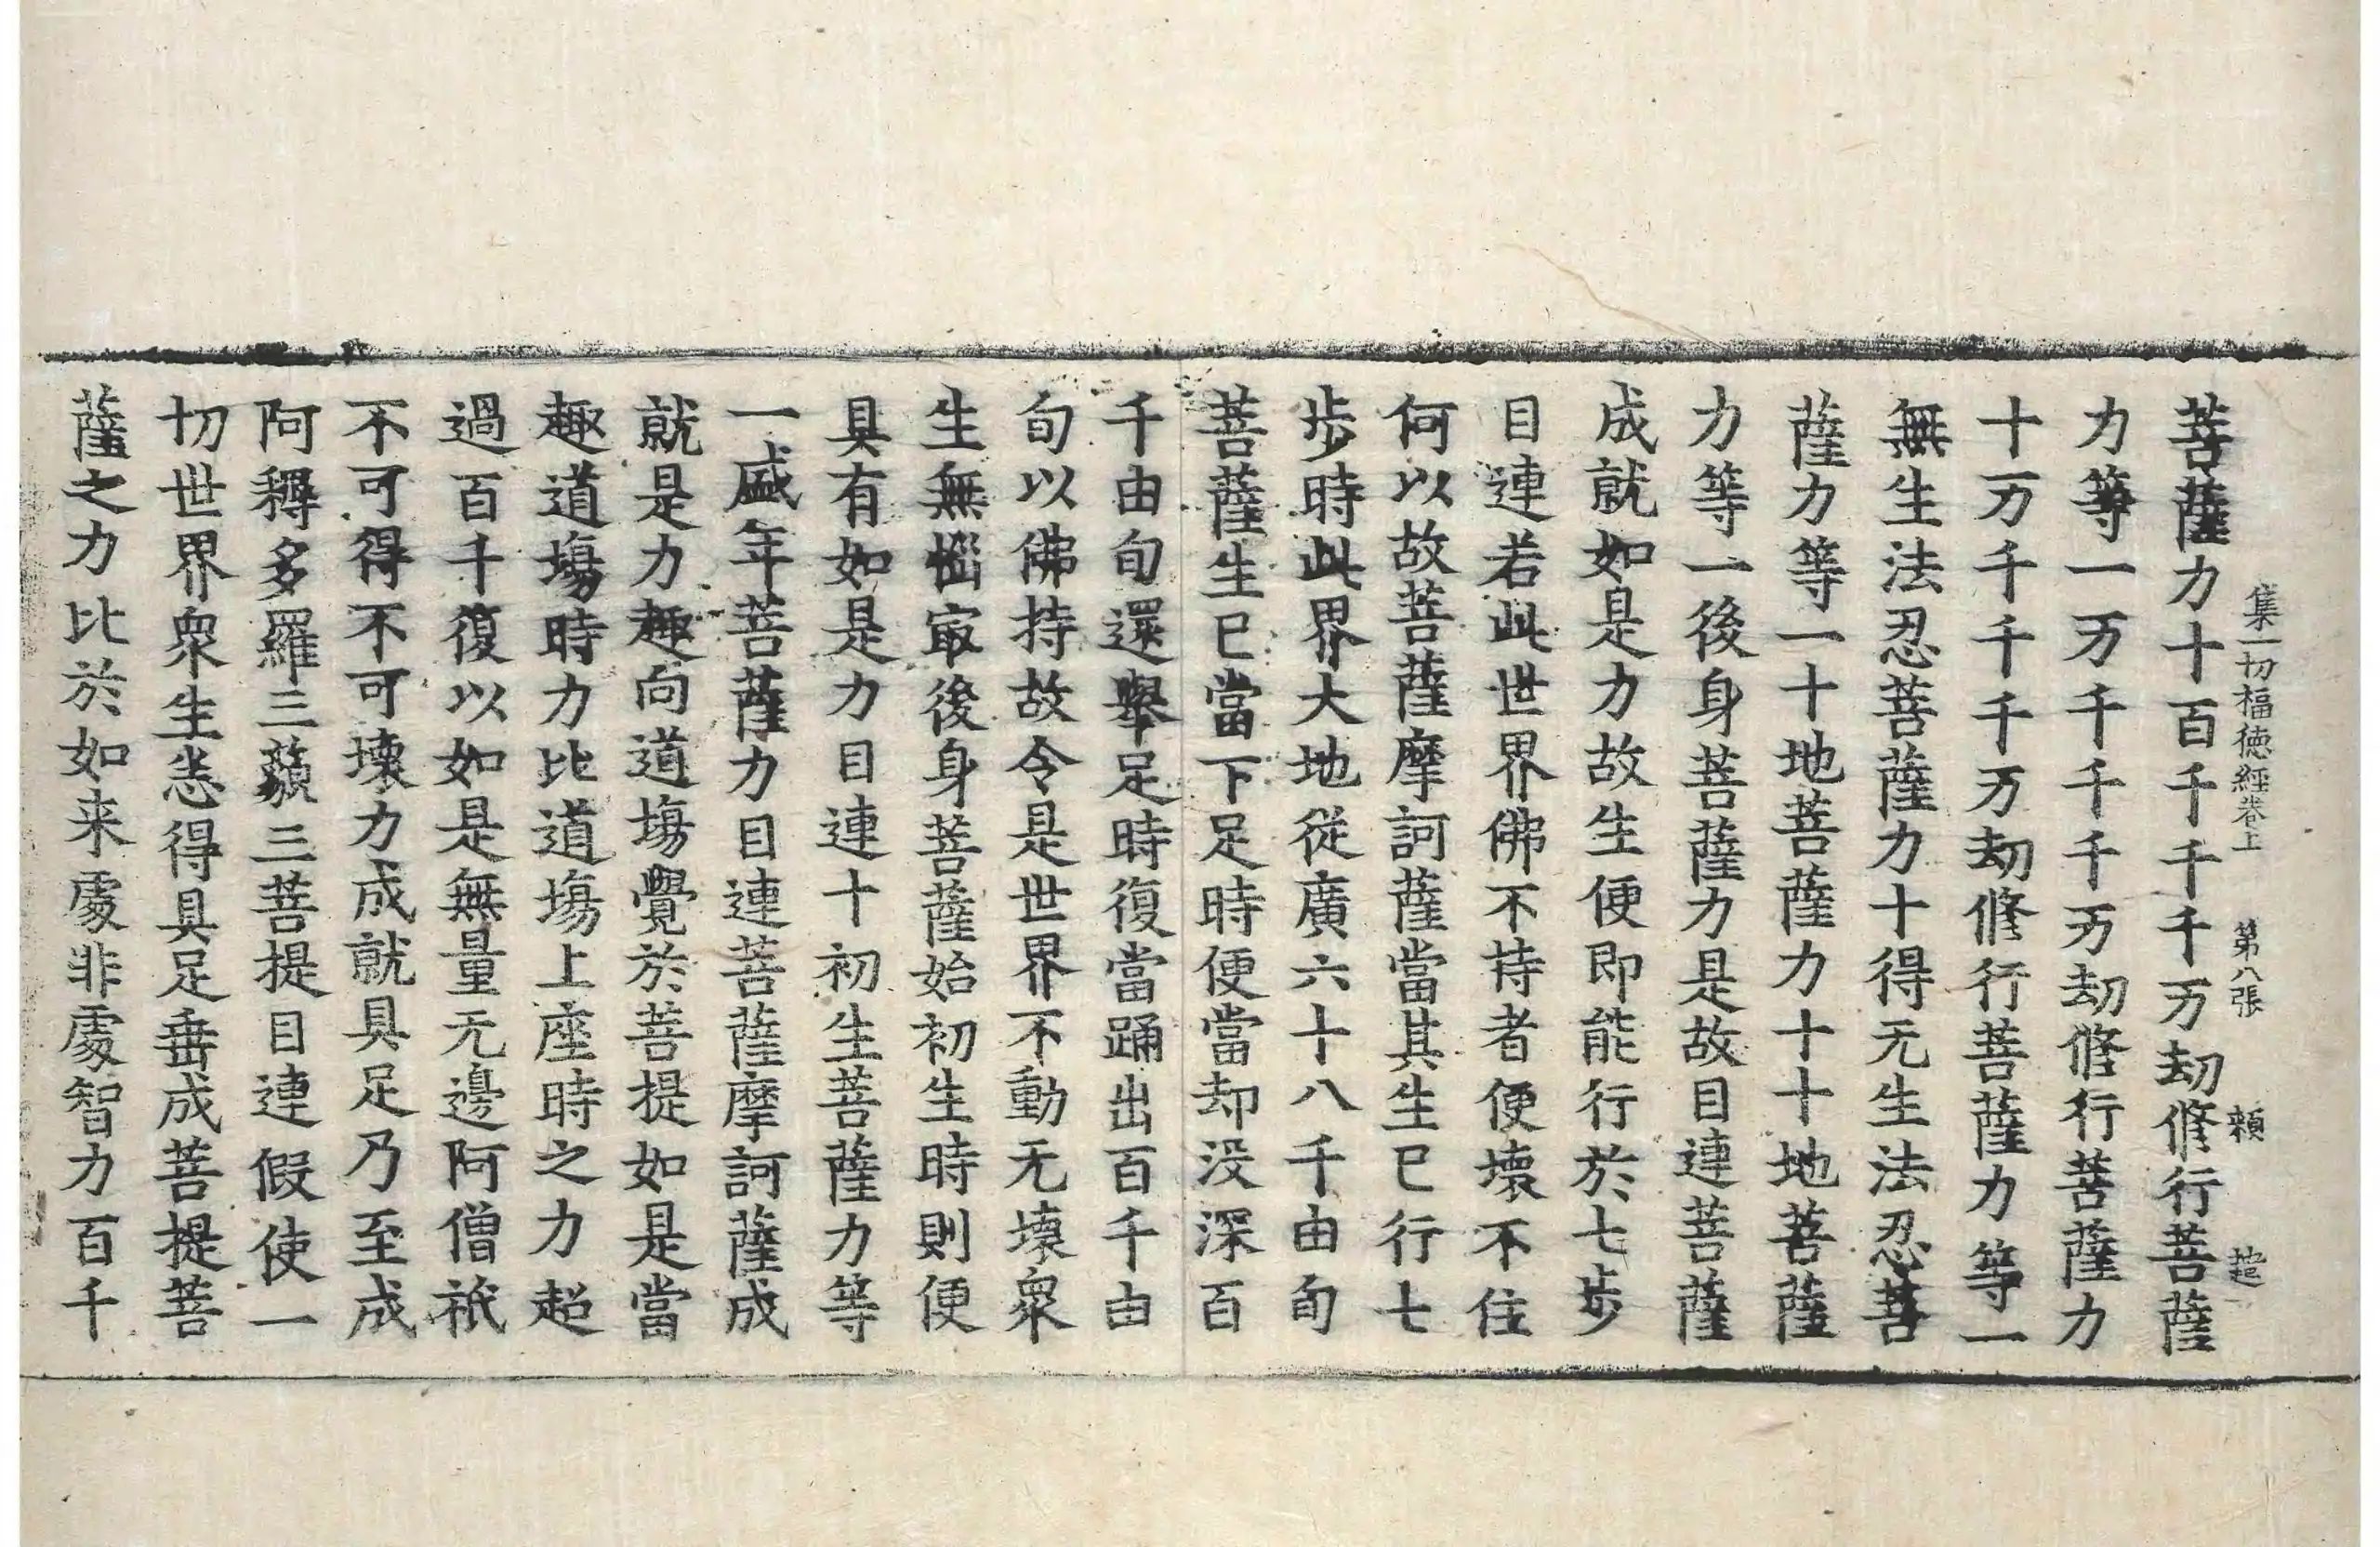 菩薩力十百千千千万劫修行菩薩
集一切福德經卷上 第八張 賴 趙
力等一万千千千万劫修行菩薩力
十万千千千万劫修行菩薩力等一
無生法忍菩薩力十得无生法忍菩
薩力等一十地菩薩力十十地菩薩
力等一後身菩薩力是故目連菩薩
成就如是力故生便即能行於七步
目連若此世界佛不持者便壞不住
何以故菩薩摩訶薩當其生已行七
步時此界大地從廣六十八千由旬
菩薩生已當下足時便當却没深百
千由旬還舉足時復當踊出百千由
旬以佛持故令是世界不動无壞衆
生無惱冣後身菩薩始初生時則便
具有如是力目連十初生菩薩力等
一盛年菩薩力目連菩薩摩訶薩成
就是力趣向道場覺於菩提如是當
趣道場時力比道場上座時之力超
過百千復以如是無量无邊阿僧祇
不可得不可壞力成就具足乃至成
阿耨多羅三藐三菩提目連假使一
切世界衆生悉得具足垂成菩提菩
薩之力比於如来處非處智力百千